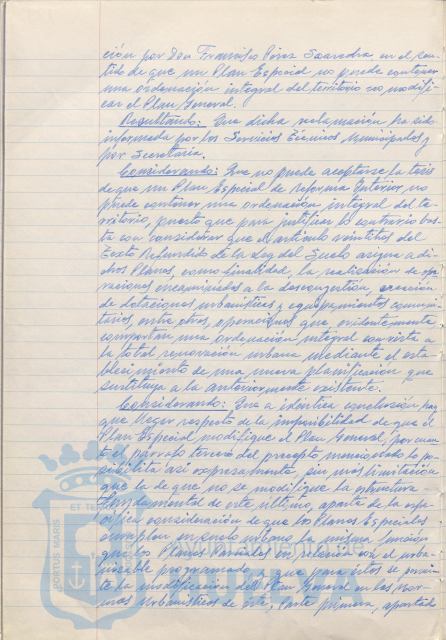 ción por Don Francisco Pérez Saavedra, en el sen-
tido de que un Plan Especial no puede contener
una ordenación integral del territorio sin modifi-
car el Plan General.
Resultando: Que dicha reclamación ha sido
informada por los Servicios Técnicos Municipales y
por Secretaría.
Considerando: Que no puede aceptarse la tesis
de que un Plan Especial de Reforma Interior no
puede contener una ordenación integral del te-
rritorio, puesto que para justificar lo contrario bas-
ta con considerar que el artículo veintitrés del
Texto Refundido de la Ley del Suelo asigna a di-
chos Planes, como finalidad, la realización de ope-
raciones encaminadas a la descongestión, creación
de dotaciones urbanísticas y equipamientos comuni-
tarios, entre otros, operaciones que evidentemente
comportan una ordenación integral con vista a
la total renovación urbana mediante el esta-
blecimiento de una nueva planificación que
sustituya a la anteriormente existente.
Considerando: Que a idéntica conclusión hay
que llegar respecto de la imposibilidad de que el
Plan Especial modifique el Plan General, por cuan-
to el párrafo tercero del precepto mencionado lo po-
sibilita así expresamente, sin más limitación
que la de que no se modifique la estructura
fundamental de este último, aparte de la espe-
cífica consideración de que los Planes Especiales
cumplen en suelo urbano la misma función
que los Planes Parciales en relación con el urba-
nizable programado que para éstos se permi-
te la modificación del Plan General en las Nor-
mas Urbanísticas de éste, Parte primera, apartado
PORTUS MARIS ET TE
HUELVA